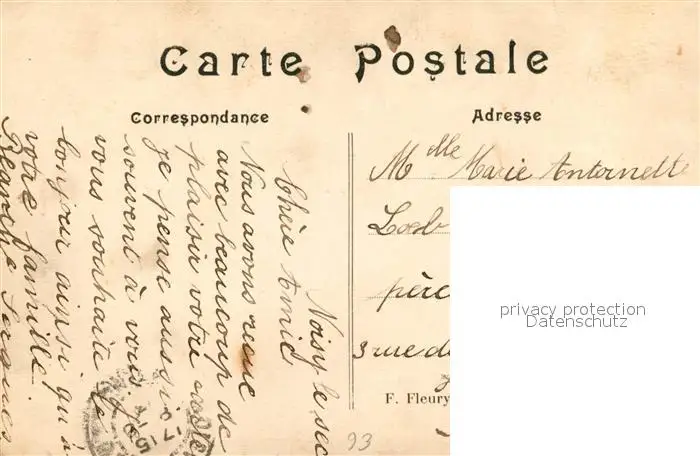 Carte Postale
Correspondance
Adresse
Noisy le sec
Chère Amie
Nous avons reçue
avec beaucoup de
plaisir votre
Je pense aussi
souvent à vous Je
vous souhaite le
bonjour ainsi qu'à
votre famille.
Mlle Marie Antoinette
Loeb
père
3 rue de
F. Fleury
93
privacy protection
Datenschutz